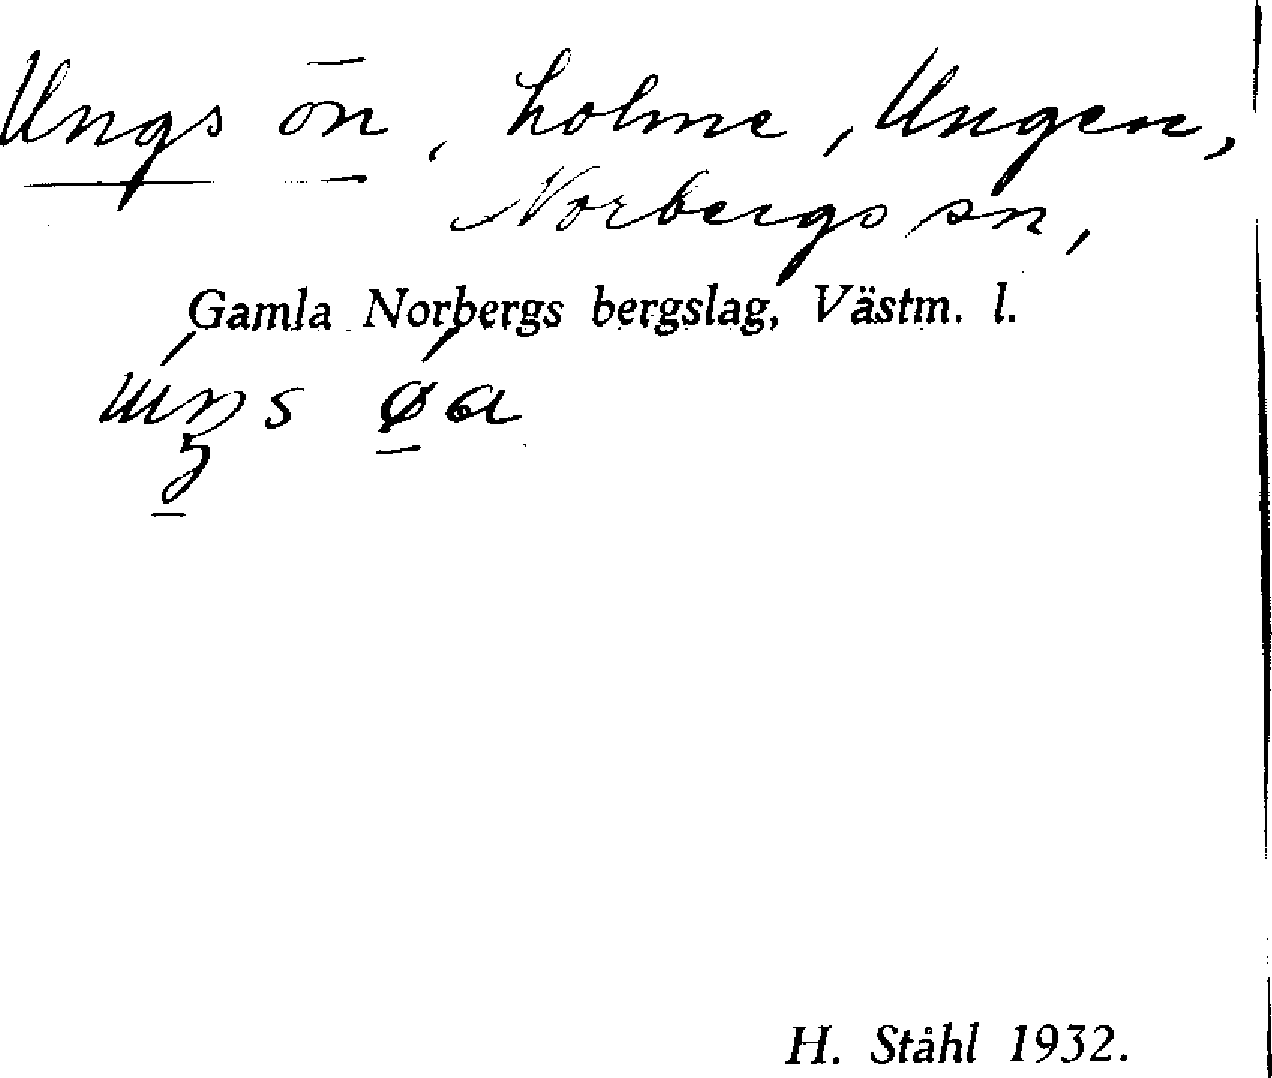 Ungs ön, holme, Ungen,
Norbergs sn,
Gamla Norbergs bergslag, Västm. l.
H. Ståhl 1932.